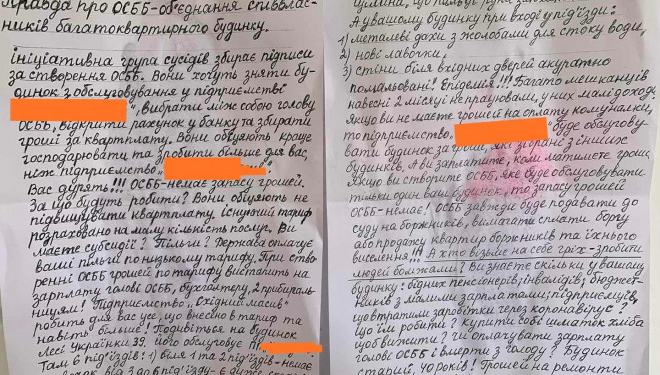 Правда про ОСББ-об'єднання співвлас-
ників багатоквартирного будинку.
ініціативна група сусідів збирає підписи
за створення ОСББ. Вони хочуть зняти бу-
динок з обслуговування у підприємстві
вибрати між собою голову
ОСББ, відкрити рахунок у банку та збирати
гроші за квартплату. Вони обіцяють краще
господарювати та зробити більше для вас,
ніж підприємство
Вас дурять!!! ОСББ-немає запасу грошей.
За що будуть робити? Вони обіцяють не
підвищувати квартплату. існуючий тариф
розраховано на малу кількість послуг. Ви
маєте субсидії? Пільги? Держава оплачує
ваші пільги по низькому тарифу. При ство-
ренні ОСББ грошей по тарифу вистачить на
зарплату голові ОСББ, бухгалтеру, 2 прибираль-
ницям! Підприємство „Східний масив"
робить для вас усе, що внесено в тариф та
навіть більше! Подивіться на будинок
Лесі Українки 39, його обслуговує
Там 6 під'їздів! 1) біля 1 та 2 під'їздів-немає
від 3 до 6 під'їзду-є
А у вашому будинку при вході у під'їзди:
1) металеві дахи з жолобами для стоку води,
2) нові лавочки,
3) стіни біля вхідних дверей акуратно
помальовані! Епідемія!!! Багато мешканців
навесні 2 місяці не працювали, у них малі доходи,
Якщо ви не маєте грошей на оплату комуналки,
то підприємство буде обслугову-
вати будинок за гроші, які зібрані з інших
будинків. А ви заплатите, коли матимете гроші
Якщо ви створите ОСББ, яке буде обслуговувати
тільки один ваш будинок, то запасу грошей
ОСББ-немає! ОСББ завжди буде подавати до
суду на боржників, вимагати сплати боргу
або продажу квартир боржників та їхнього
виселення!!! А хто візьме на себе гріх-зробити
людей бомжами? Ви знаєте скільки у вашому
будинку: бідних пенсіонерів; інвалідів; бюджет-
ників з малими зарплатами; підприємців,
що втратили заробітки через коронавірус?
Що їм робити? купити собі шматок хліба
щоб вижити? чи оплачувати зарплату
голові ОСББ і вмерти з голоду? Будинок
старий, 40 років! Грошей на ремонти